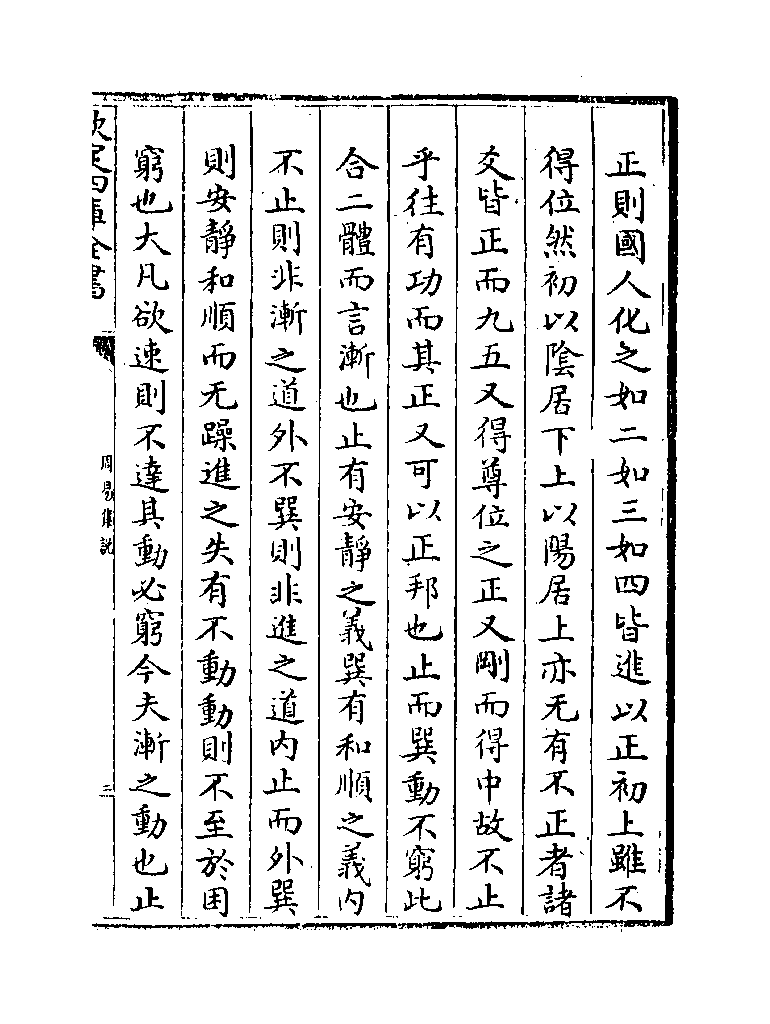 正則國人化之如二如三如四皆進以正初上雖不
得位然初以陰居下上以陽居上亦无有不正者諸
爻皆正而九五又得尊位之正又剛而得中故不止
乎往有功而其正又可以正邦也止而巽動不窮此
合二體而言漸也止有安靜之義巽有和順之義内
不止則非漸之道外不巽則非進之道内止而外巽
則安靜和順而无躁進之失有不動動則不至於困
窮也大凡欲速則不達其動必窮今夫漸之動也止
欽定四庫全書
周易集説
三